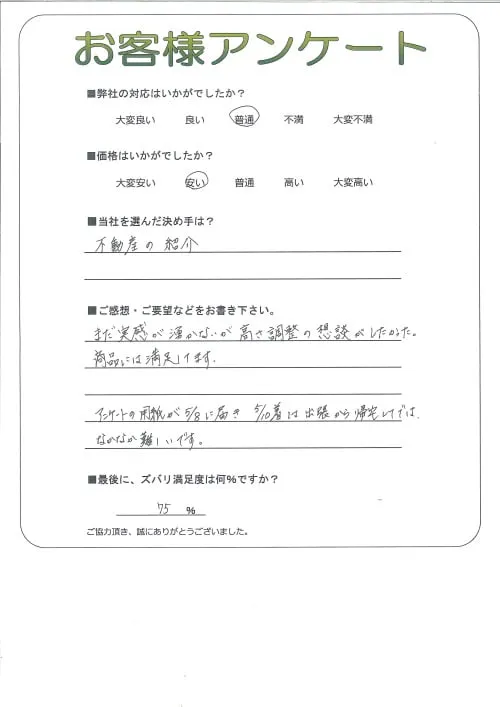 お客様アンケート
■弊社の対応はいかがでしたか？
大変良い 良い 普通 不満 大変不満
■価格はいかがでしたか？
大変安い 安い 普通 高い 大変高い
■当社を選んだ決め手は？
不動産の紹介
■ご感想・ご要望などをお書き下さい。
まだ実感が湧かないが高さ調整の想談がしたかった。
商品には満足してます。
アンケートの用紙が5/8に届き 5/10着は出張から帰宅してでは、
なかなか難しいです。
■最後に、ズバリ満足度は何％ですか？
75 %
ご協力頂き、誠にありがとうございました。